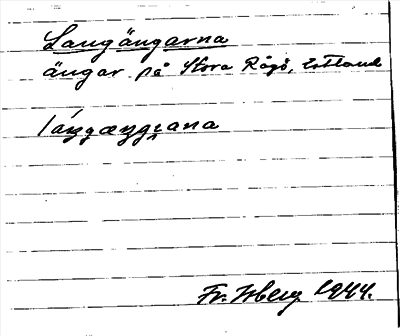 Langängarna
ängar på Stora Rågö, Estland
láŋgæŋgana
Fr. Isberg 1944.